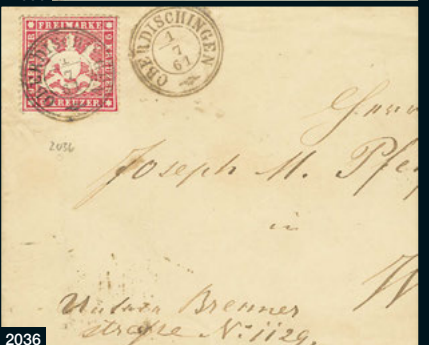 FREIMARKE
KREUZER
OBERDISCHINGEN
1
7
61
2036
Herrn
Joseph M. Pf
in
W
Untere Brenner
straße No. 1129.
2036